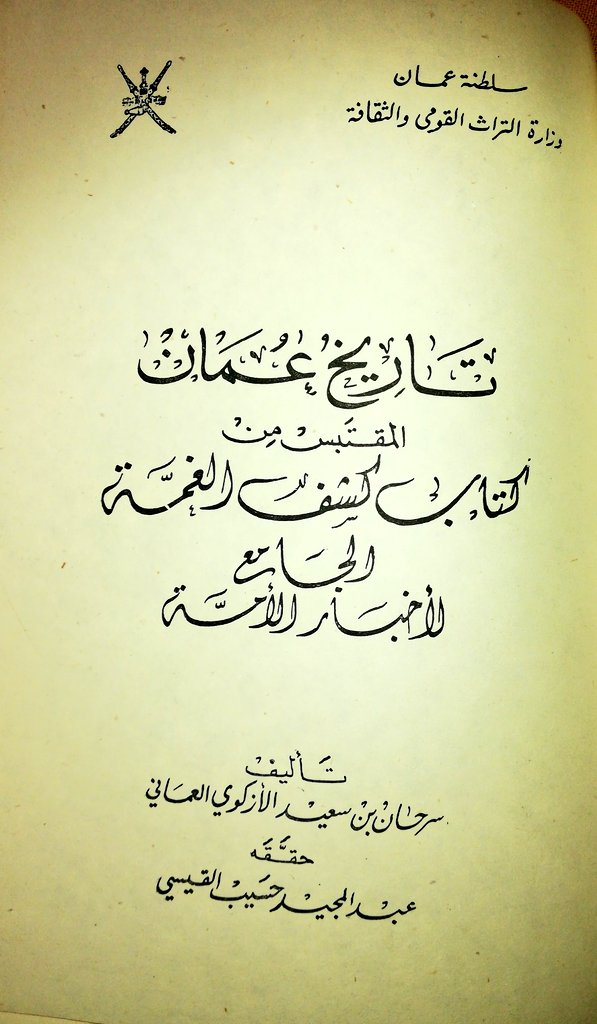 سلطنة عمان
وزارة التراث القومى والثقافة
تَاريخ عُمَان
المقتَبس مِن
كتاب كشف الغمَّة
الجَامع
لأخبَار الأمَّة
تَأليف
سرحان بن سعيد الأزكوي العماني
حقَّقَه
عبد المجيد حسَيب القيسي